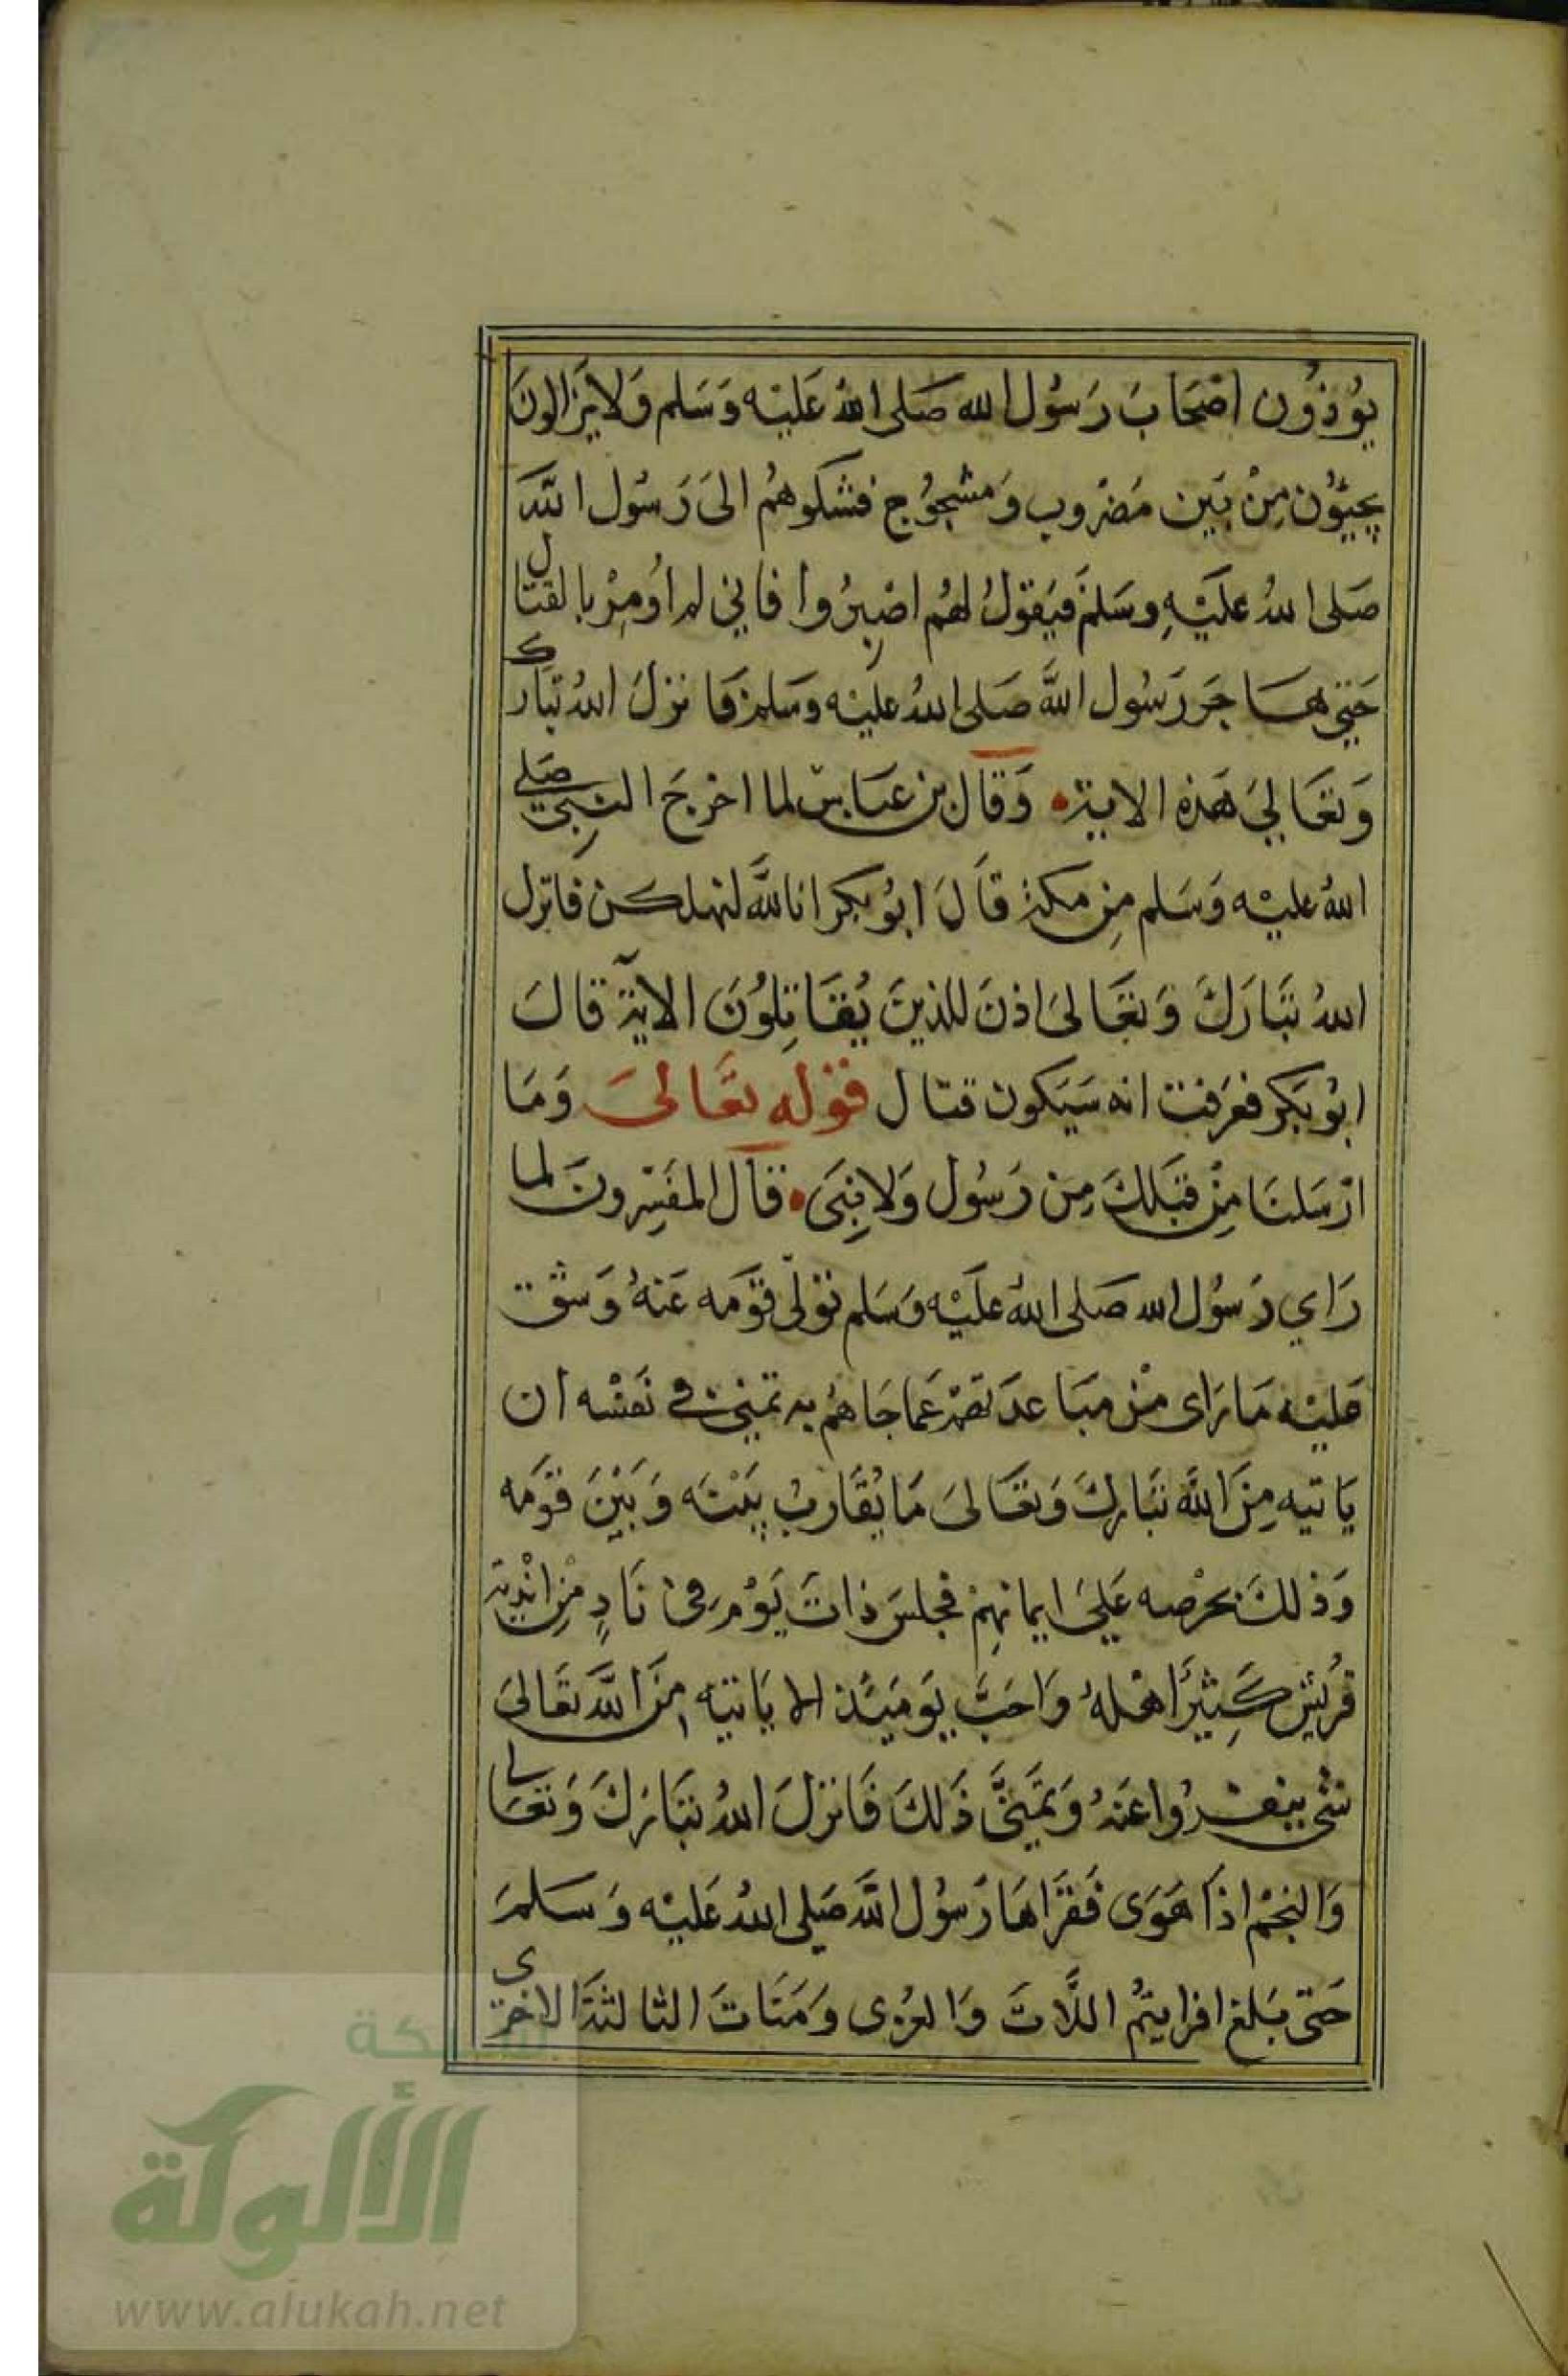 يُوذُون اصْحَابَ رَسُول الله صَلى اللهُ عَليْه وَسَلم وَلا يَزالونَ
يجيّؤُن مِنْ بَين مَضْروب وَمشجوُج فشكوهُم الىَ رَسُول اللَّه
صَلى اللهُ عليَْهِ وسَلمَ فيَقولُ لهُم اصْبِرُوا فاني لم اُومِرْ بالقتال
حَتي هَاجَر رَسُول اللهَّ صَلى اللهُ عليْه وسَلم فانزلَ اللهُ تبارك
وَتعَاليَ هَذه الاية وَقال بن عبَاس لما اخرجَ النبِي صَلي
اللهُ عليْه وَسَلم مِن مكة قاَلَ ابوُبكر انا للَّه لنهلكن فانزل
اللهُ تبَارَكَ وَتعَالىَ اذنَ للذينَ يُقاتِلوُنَ الآية قالَ
ابوُبَكر فعَرَفت انه سَيَكون قتال قوْله تعَالىَ وَمَا
ارْسَلنَا مِنْ قبَلكَ مِن رَسُول وَلا نِبَى قاَل المفسِّرونَ لما
رَاي رَسُول الله صَلى اللهُ عليَْه وَسَلم توَلّى قوَمه عَنهُ وَشق
عَليْه مَا رَاى منْ مبَاعدَتهمْ عَما جَاهُم به تمنى في نَفسْه ان
يَاتيه مِنَ اللَّه تبَاركَ وَتعَالىَ مَا يُقَاربُ بيَنْه وَبَيْنَ قوَمه
وَذلكَ بحرْصه عَليَ ايمانِهِمْ فجلسَ ذاتَ يَوْم في نَادٍ مِنْ اندِية
قرُيشْ كَثِيرَ اهْلهُ وَاحَبَّ يوَميَئذ الا يَاتيه مِنَ اللَّه تعَالىَ
شي ينفرُوا عَنهُ وَتمَنيَّ ذَلكَ فَانزلَ اللهُ تبَارَكَ وَتعَالى
وَالنجْم اذَا هَوَى فَقَرَاهَا رَسُول اللَّه صَلى اللهُ عَليْه وَسَلمَ
حَتى بَلغ افرايتمُ اللَّاتَ وَالعُزى وَمَنَاتَ الثالثةَ الاخرى
شبكة
الألوكة
www.alukah.net